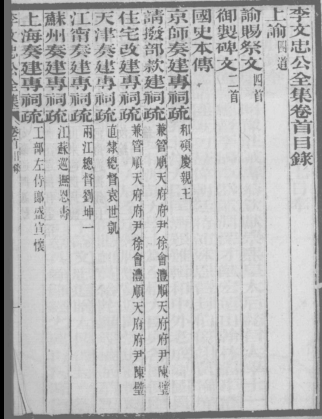 李文忠公全集卷首目錄
上諭四道
諭賜祭文四首
御製碑文二首
國史本傳
京師奏建專祠疏 和碩慶親王
請撥部款建祠疏 兼管順天府府尹徐會灃順天府府尹陳璧
住宅改建專祠疏 兼管順天府府尹徐會灃順天府府尹陳璧
天津奏建專祠疏 直隸總督袁世凱
江甯奏建專祠疏 兩江總督劉坤一
蘇州奏建專祠疏 江蘇巡撫恩壽
上海奏建專祠疏 工部左侍郎盛宣懷
李文忠公全集 卷首目錄 一